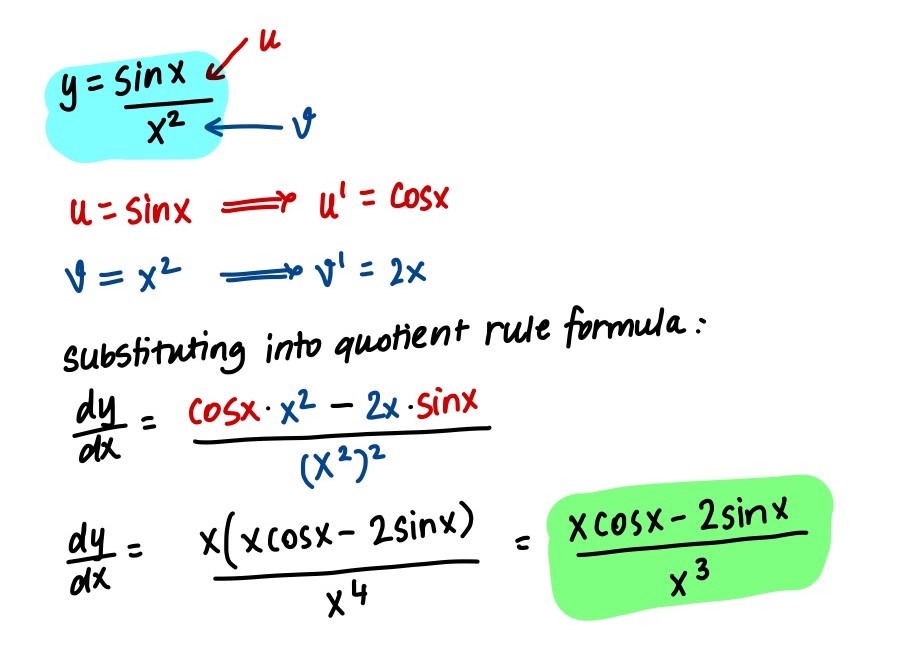 y = sinx/x² ← u
← v
u = sinx ⟹ u' = cosx
v = x² ⟹ v' = 2x
substituting into quotient rule formula:
dy/dx = (cosx · x² − 2x · sinx)/(x²)²
dy/dx = x(xcosx − 2sinx)/x⁴ = (xcosx − 2sinx)/x³